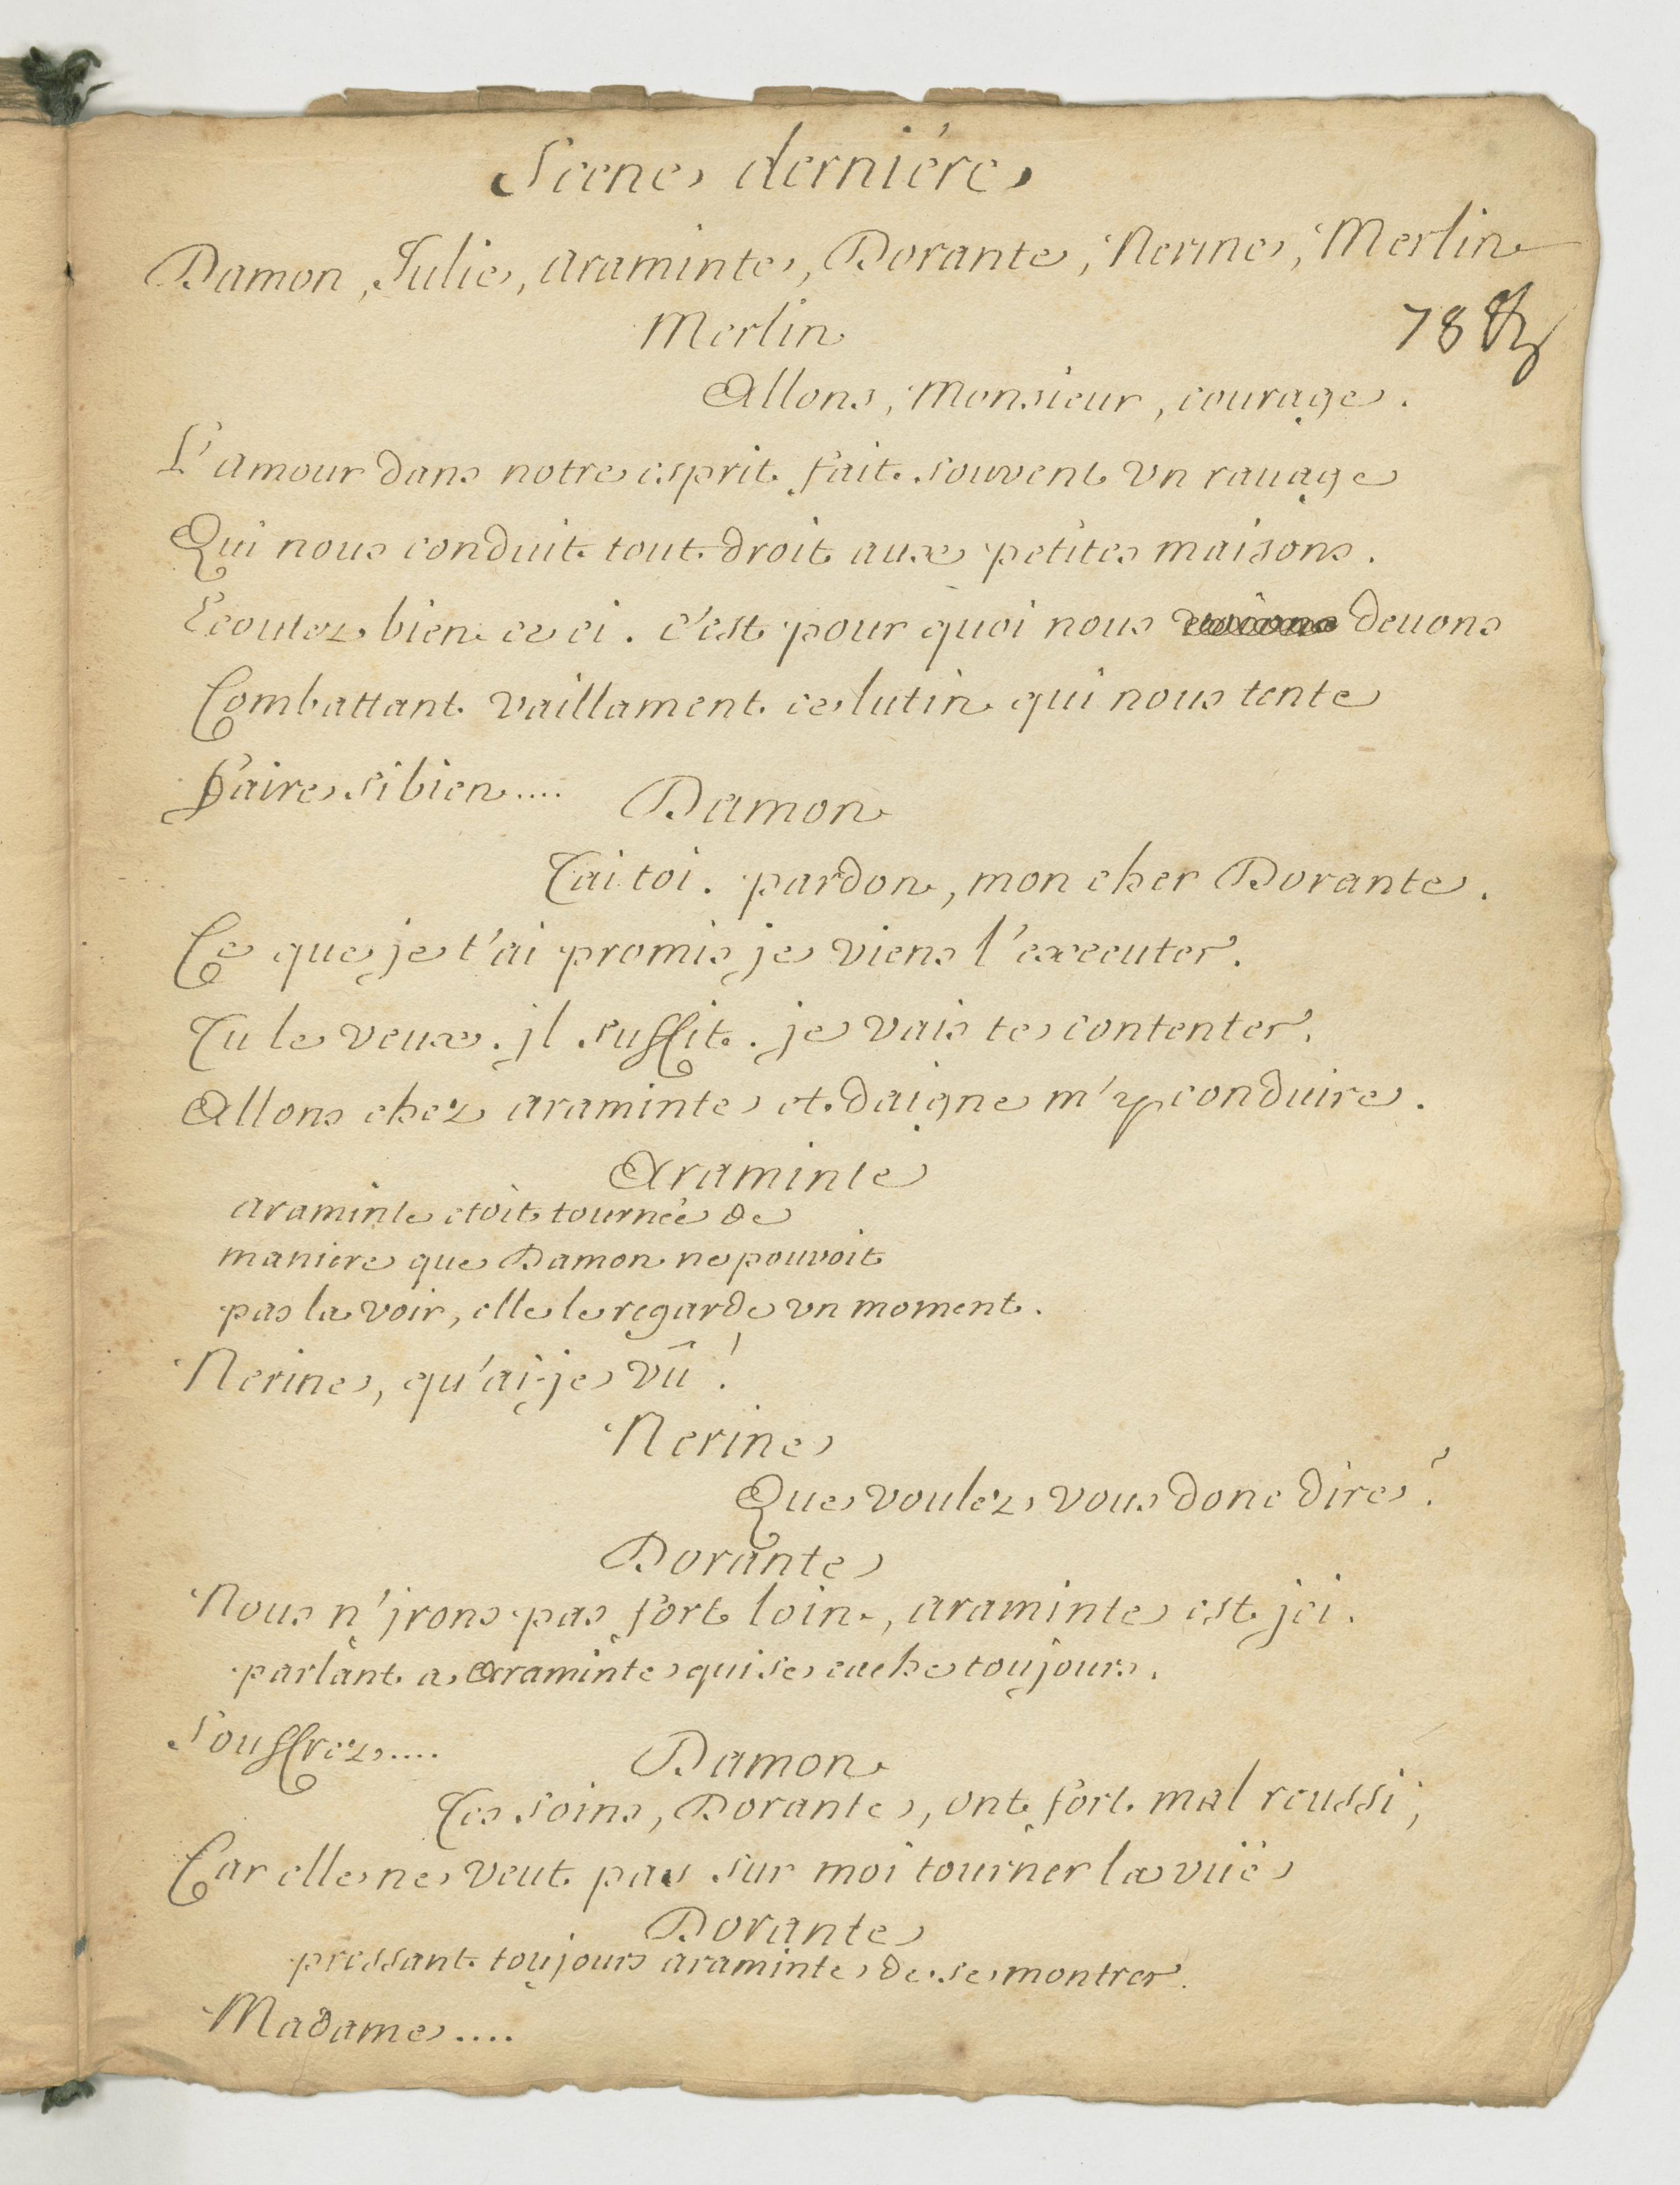 Scene derniére
Damon, Julie, araminte, Dorante, Nerine, Merlin
Merlin
78
Allons, Monsieur, courage.
L'amour dans notre esprit fait souvent vn rauage
Qui nous conduit tout droit aux petites maisons.
Ecoutez bien ce ci. c'est pour quoi nous deuons
Combattant vaillament ce lutin qui nous tente
Faire si bien....
Damon
Tai toi. pardon, mon cher Dorante.
Ce que je t'ai promis je viens l'executer.
Tu le veux. jl suffit. je vais te contenter.
Allons chez araminte et daigne m'y conduire.
Araminte
araminte etoit tournée de
maniere que Damon ne pouvoit
pas la voir, elle le regarde vn moment.
Nerine, qu'ai-je vû!
Nerine
Que voulez vous donc dire?
Dorante
Nous n'jrons pas fort loin, araminte est jci.
parlant a Araminte qui se cache toujours.
Souffrez....
Damon
Tes soins, Dorante, ont fort mal reussi;
Car elle ne veut pas sur moi tourner la vüe
Dorante
pressant toujours araminte de se montrer.
Madame....